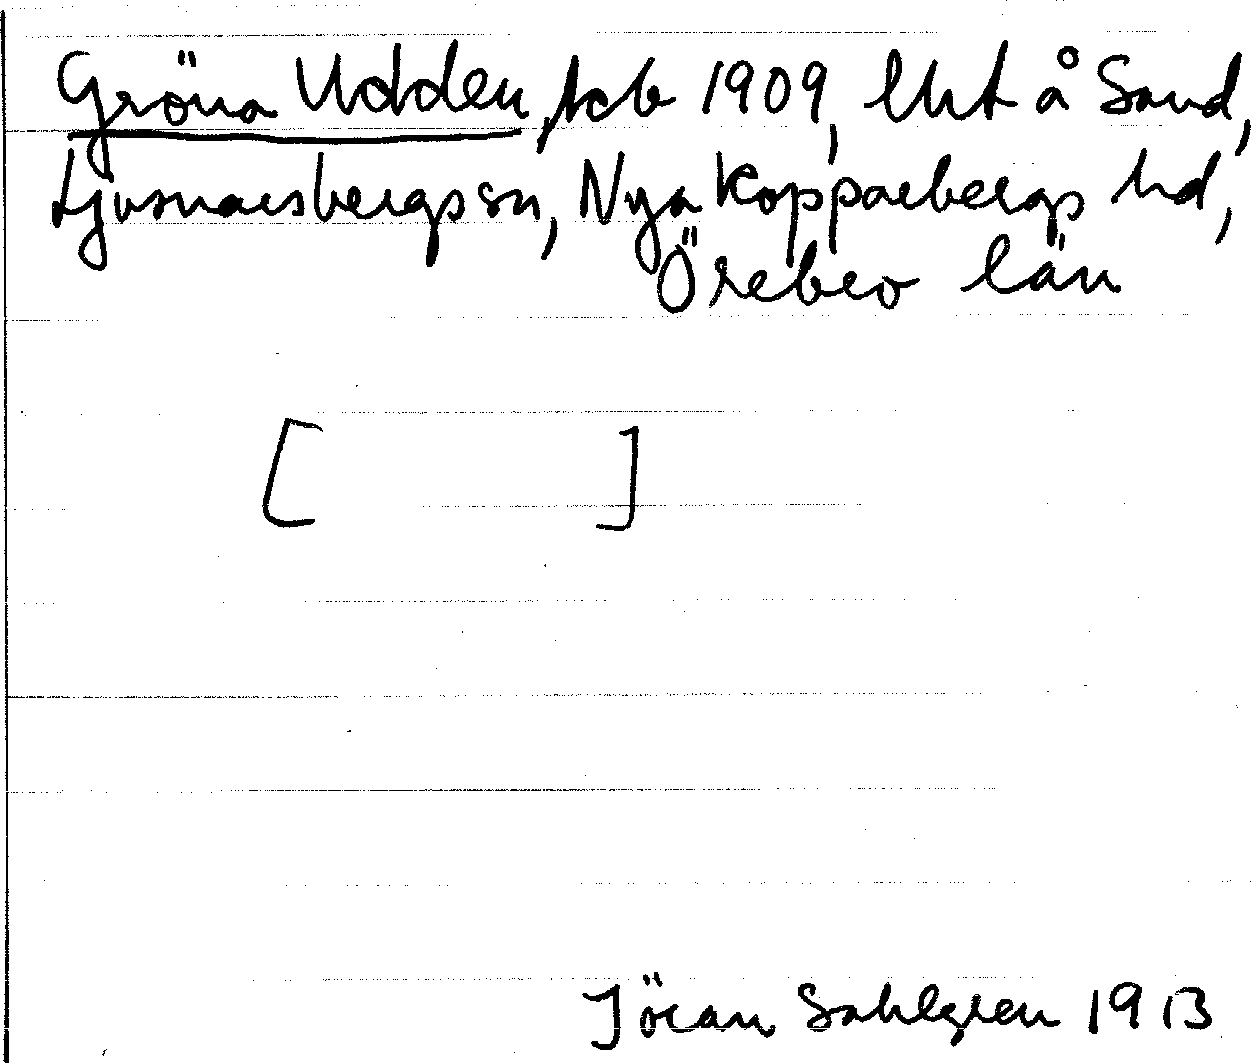 Gröna Udden, jcb 1909, lht å Sand,
Ljusnarsbergs sn, Nya Kopparbergs hd,
Örebro län
[ ]
Jöran Sahlgren 1913